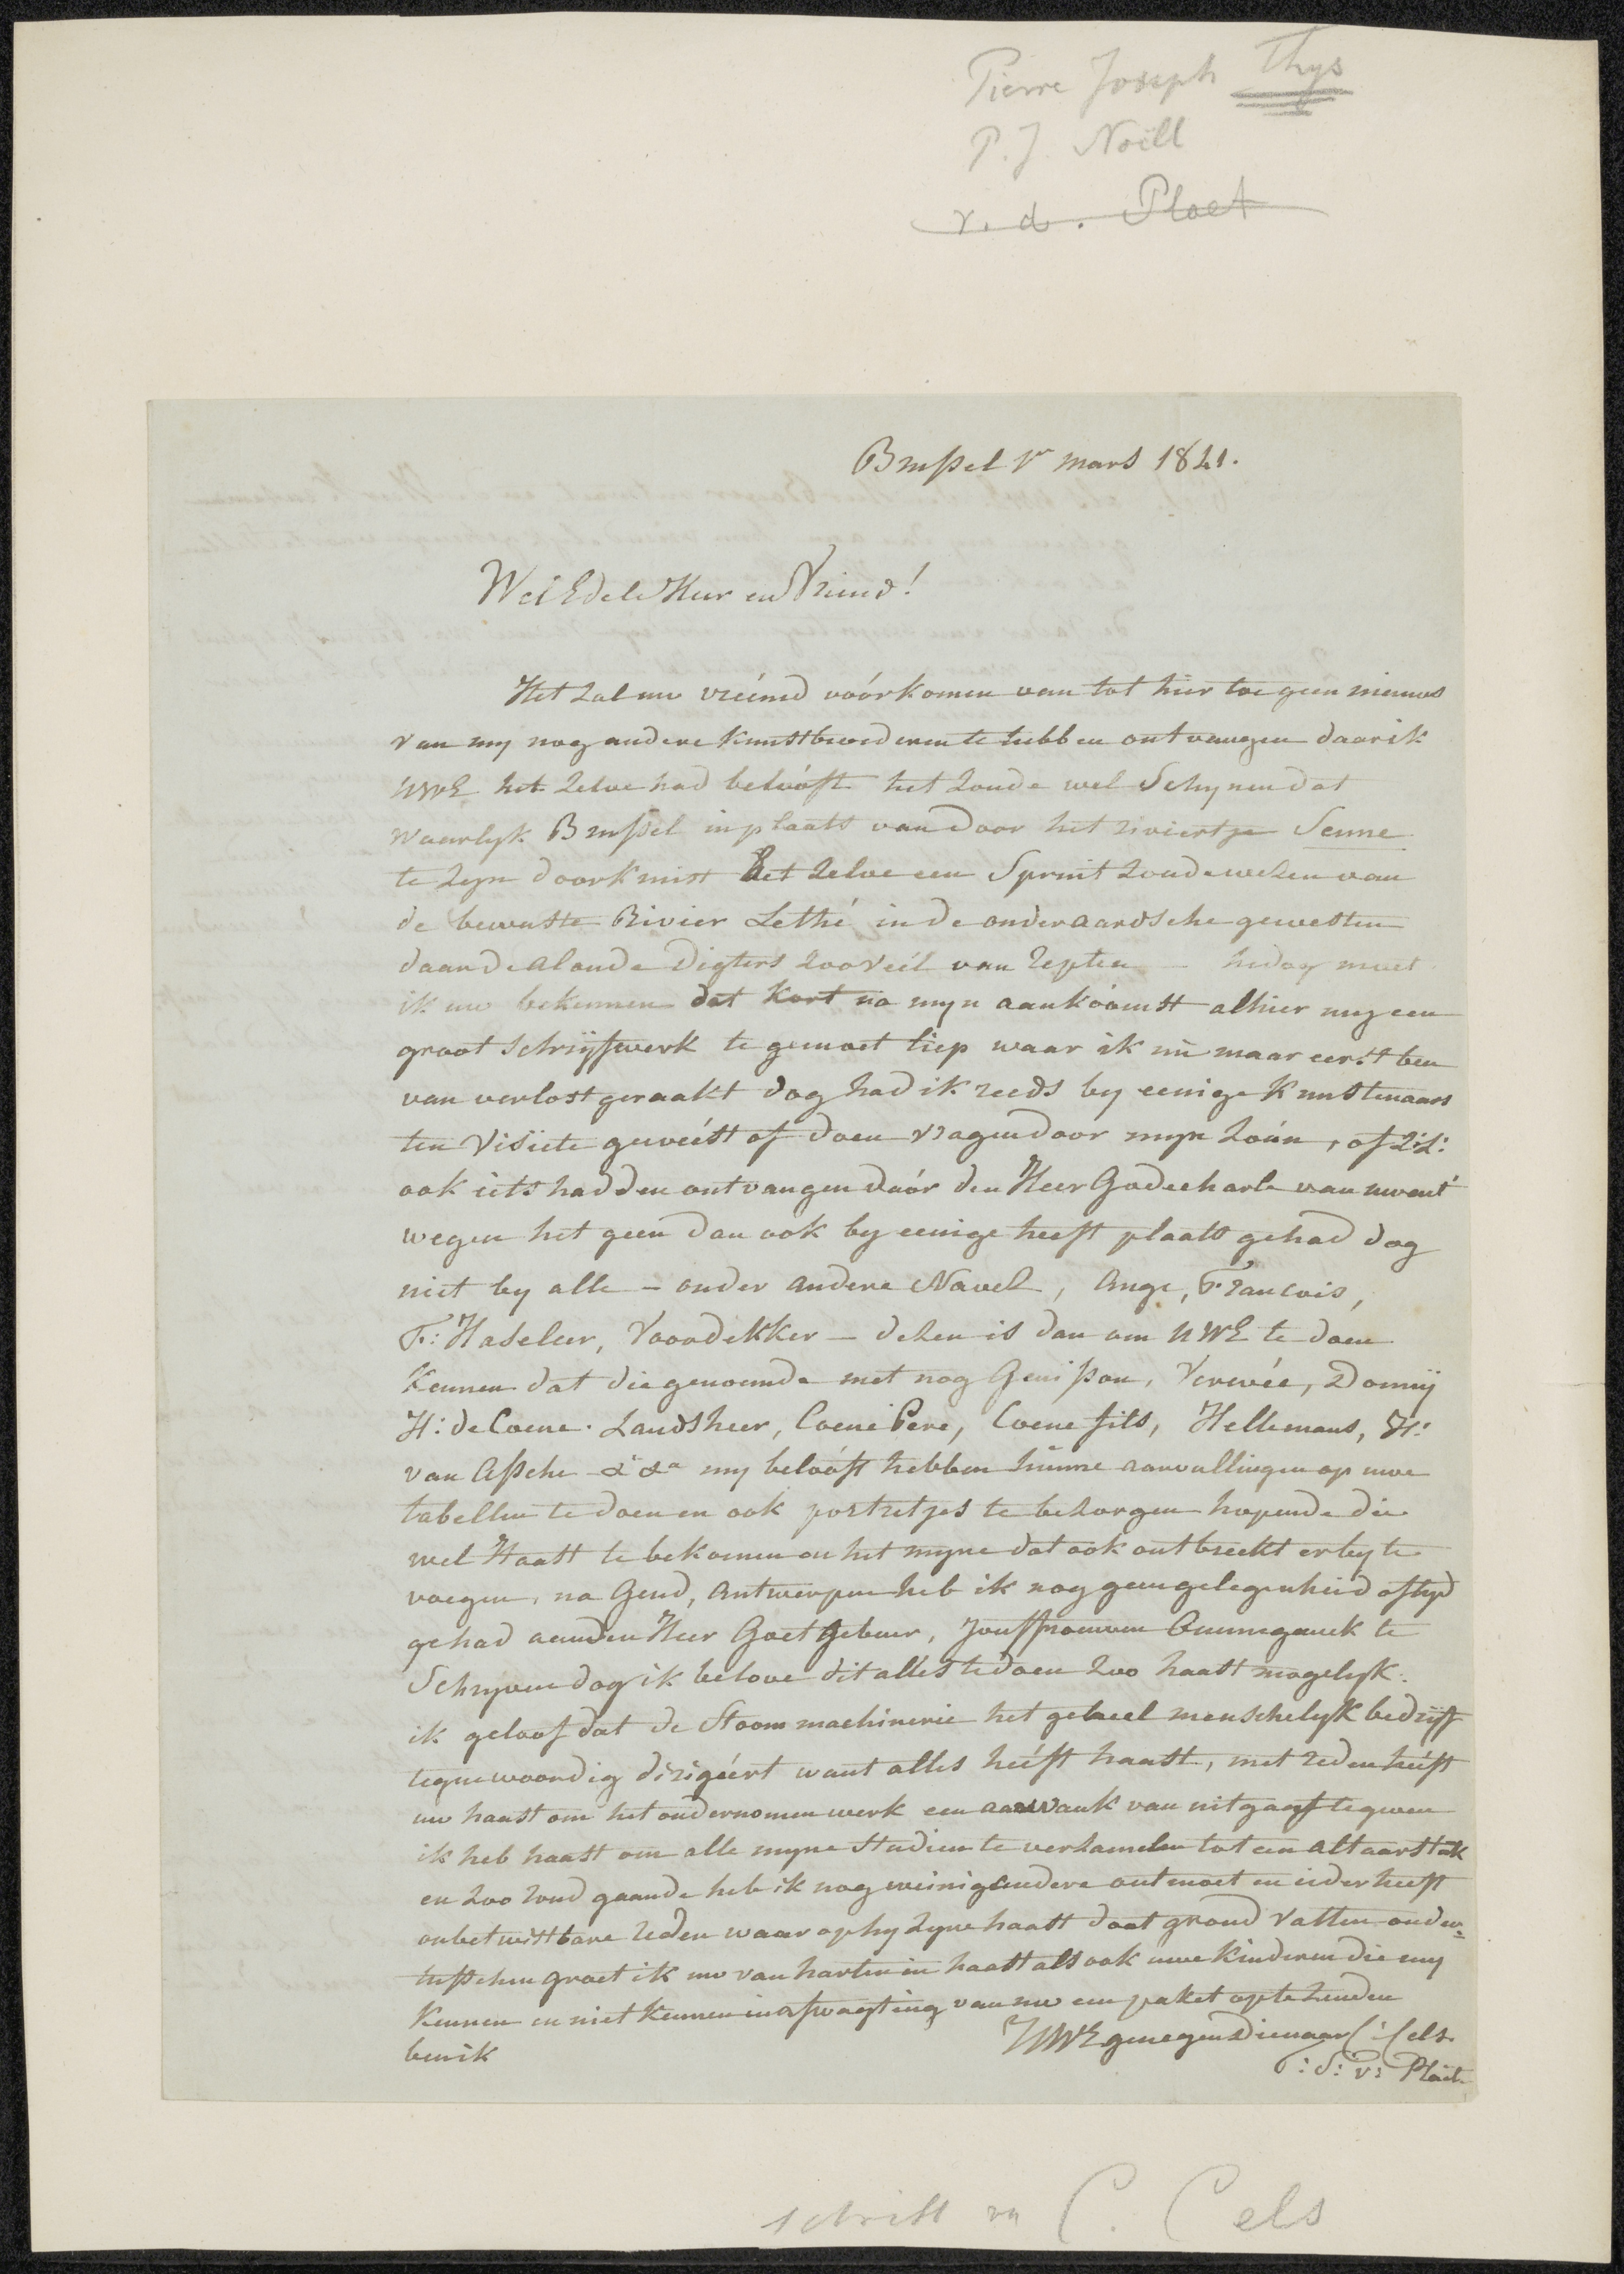 Pierre Joseph Thys
P. J. Noëll
v. d. Plaet
Brussel 1r mars 1841.
Wel Edele Heer en Vriend!
Het zal uw vréémd vóórkomen van tot hier toe geen nieuws
van my nog andere Kunstbroederen te hebben ontvangen daar ik
UWE het zelve had belóóft het zoude wel Schynen dat
waarlyk Brussel in plaats van door het riviertje Senne
te zyn doorkruist het zelve een Spruit zoude wezen van
de bewuste Rivier Lethé in de onderaardsche gewesten
daar de aloude Digters zoo veél van repten — hedog moet
ik uw bekennen dat Kort na myn aankóómst alhier my een
groot schryfwerk te gemoet liep waar ik nù maar eerst ben
van verlost geraakt dog had ik reeds by eenige Kunstenaars
ten Visiete gewéést of doen vragen door myn Zóón, of Z:Z:
ook iets hadden ontvangen dóór den Heer Godecharle van uwent
wegen het geen dan ook by eenige heeft plaats gehad dog
niet by alle — onder andere Navez, Ange, Francois,
F: Haseleer, Voordekker — dezen is dan om UWE te doen
Kennen dat die genoemde met nog Genisson, Verwée, Donny
H: de Coene. Landsheer, Coene Pere, Coene fils, Hellemans, H:
van Assche &a &a my belóóft hebben hùnne aanvullingen op uwe
tabellen te doen en ook portretjes te bezorgen hopende die
wel Haast te bekomen en het myne dat ook ontbreekt erby te
voegen, na Gend, Antwerpen heb ik nog geen gelegenheid of tyd
gehad aan den Heer Goetgebuer, Jouffrouwen Ommeganck te
Schryven dog ik belove dit alles te doen zoo haast mogelyk.
ik geloof dat de Stoom machinerie het geheel menschelyk bedryff
tegenwoordig dirigéért want alles hééft haast, met reden hééft
uw haast om het ondernomen werk een aanvank van uitgaaf te geven
ik heb haast om alle myne Studien te verzamelen tot een altaarstuk
en zoo rond gaande heb ik nog weinig andere ontmoet en ieder heeft
onbetwistbare reden waar op hy zyne haast doet grond vatten onder=
tusschen groet ik uw van harten in haast als ook uwe Kinderen die my
Kennen en niet Kennen in afwagting van uw een paket op te zenden
ben ik
UWE genegen Dienaar C: Cels.
T: S: V: Plait.
schrift vn C. Cels